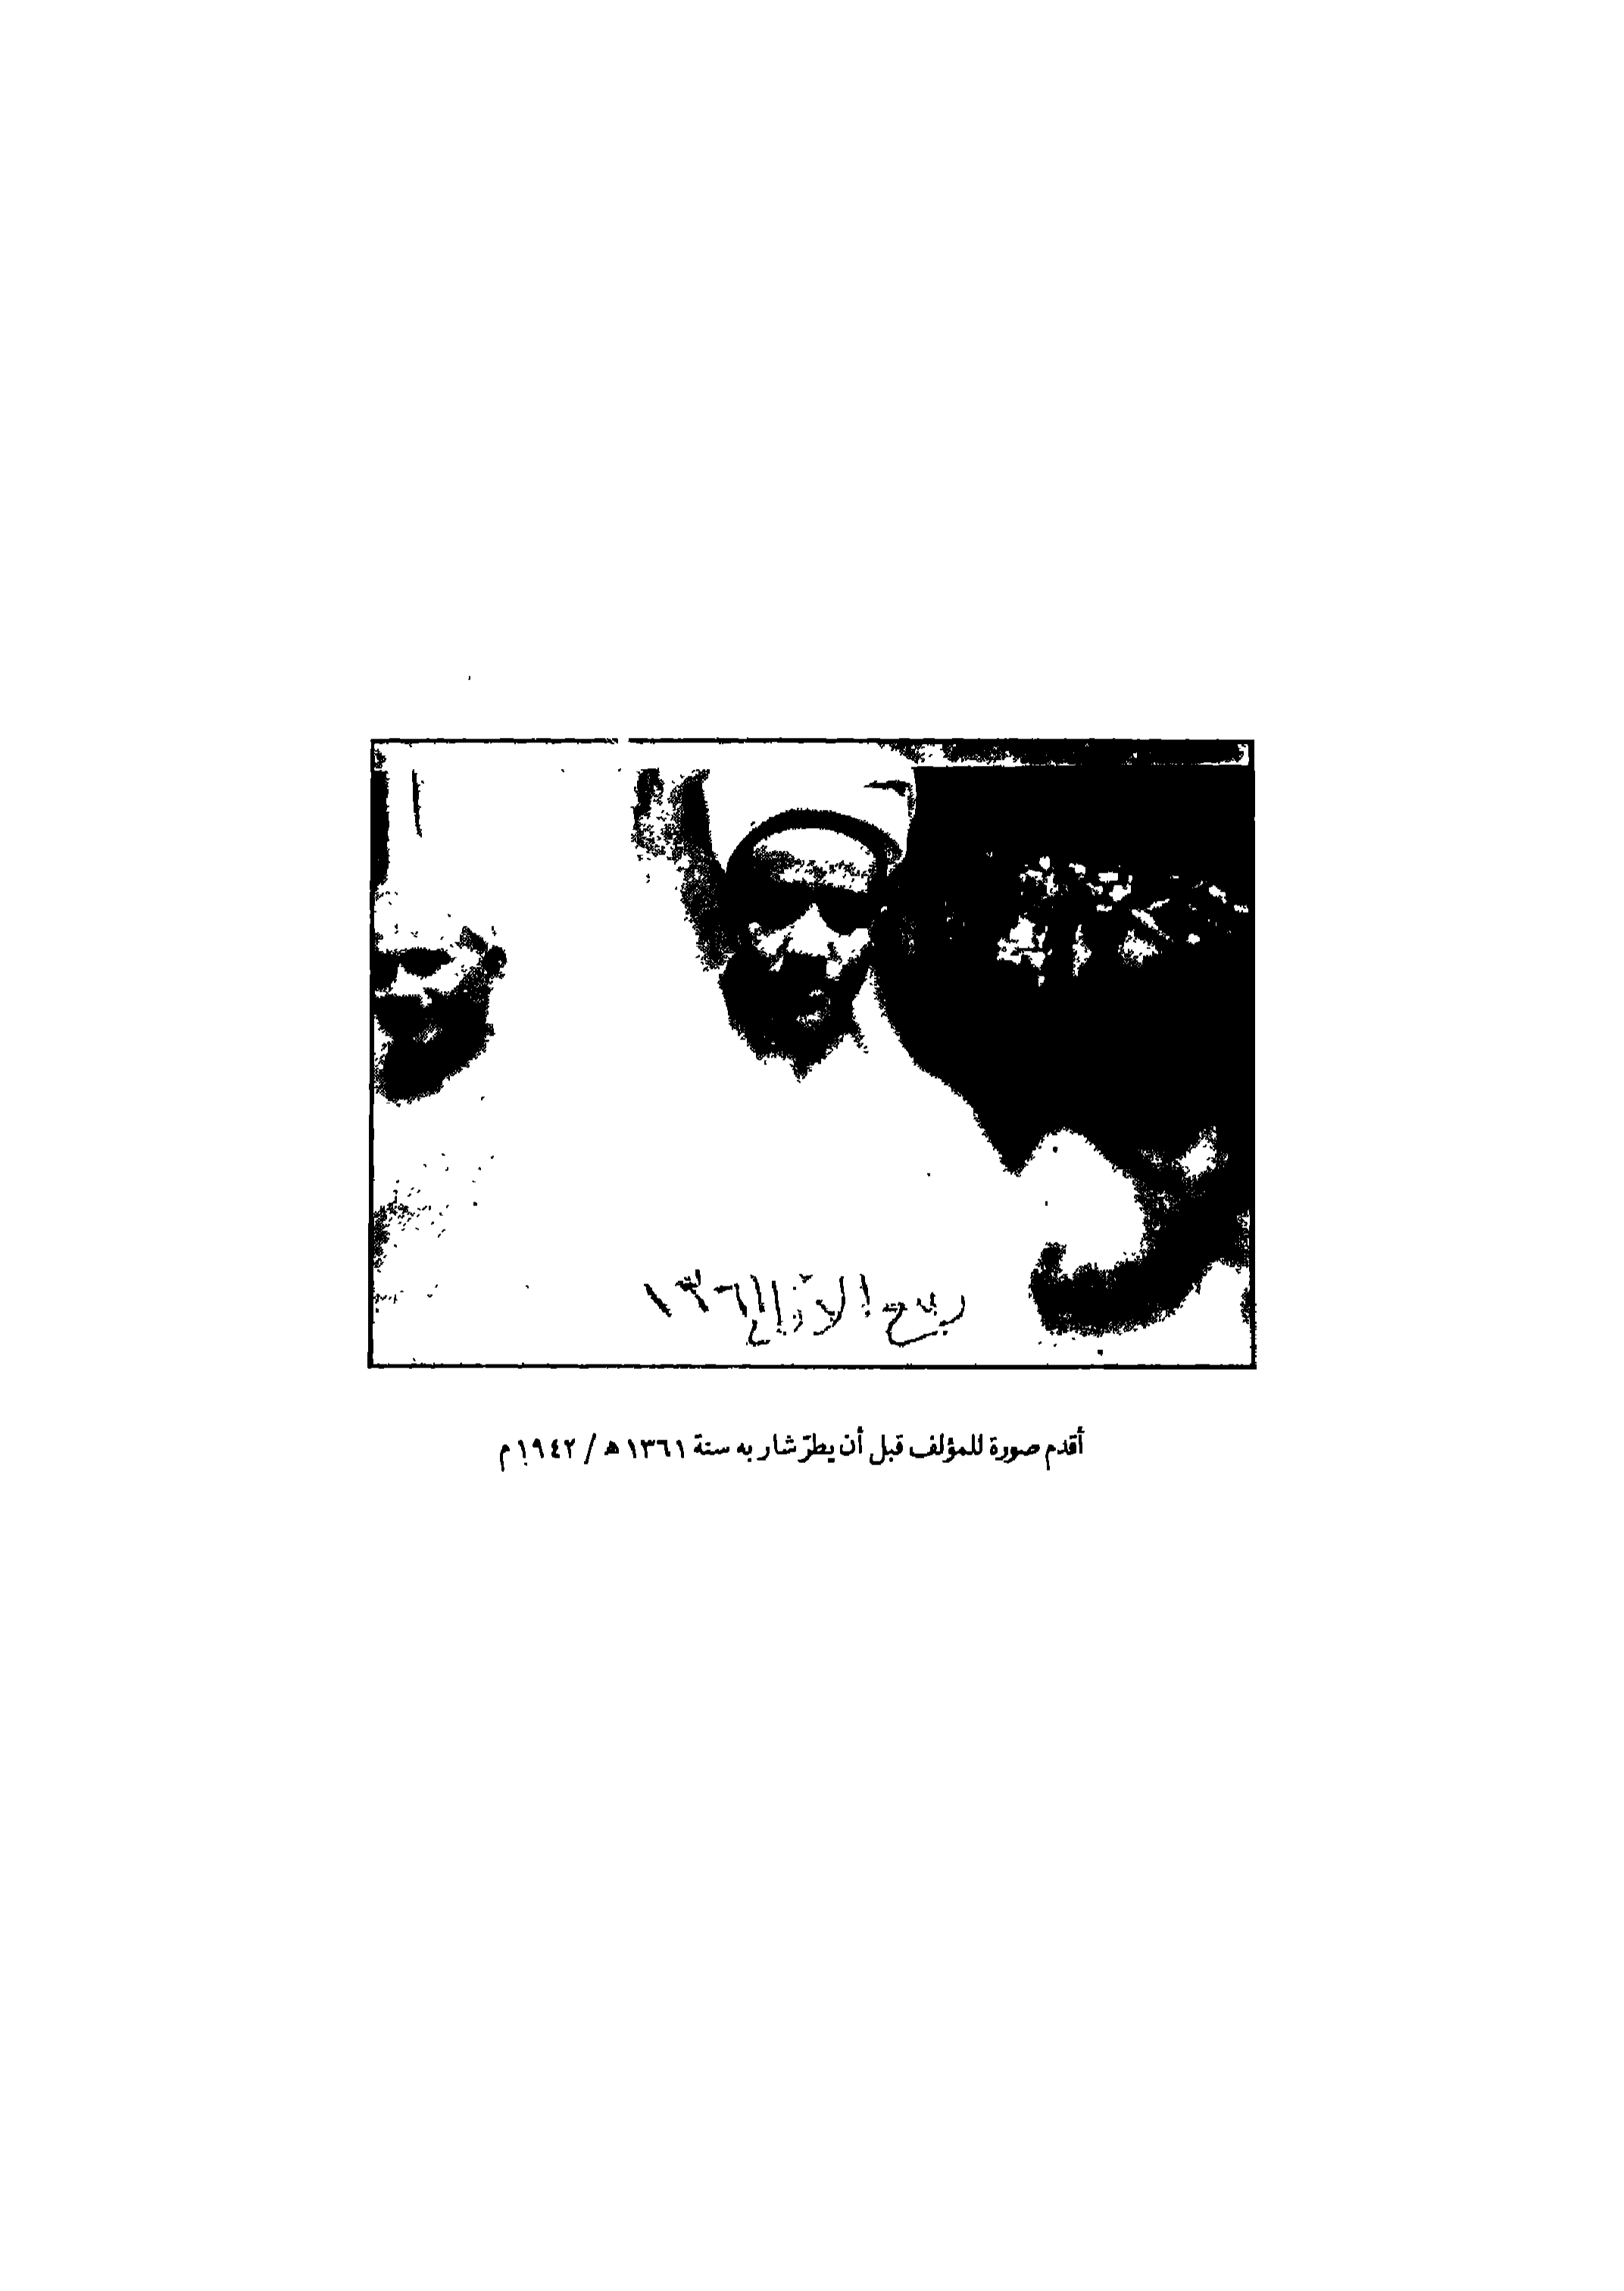 ربيع الآخر ١٣٦١
أقدم صورة للمؤلف قبل أن يطرّ شاربه سنة ١٣٦١ه‍ / ١٩٤٢م